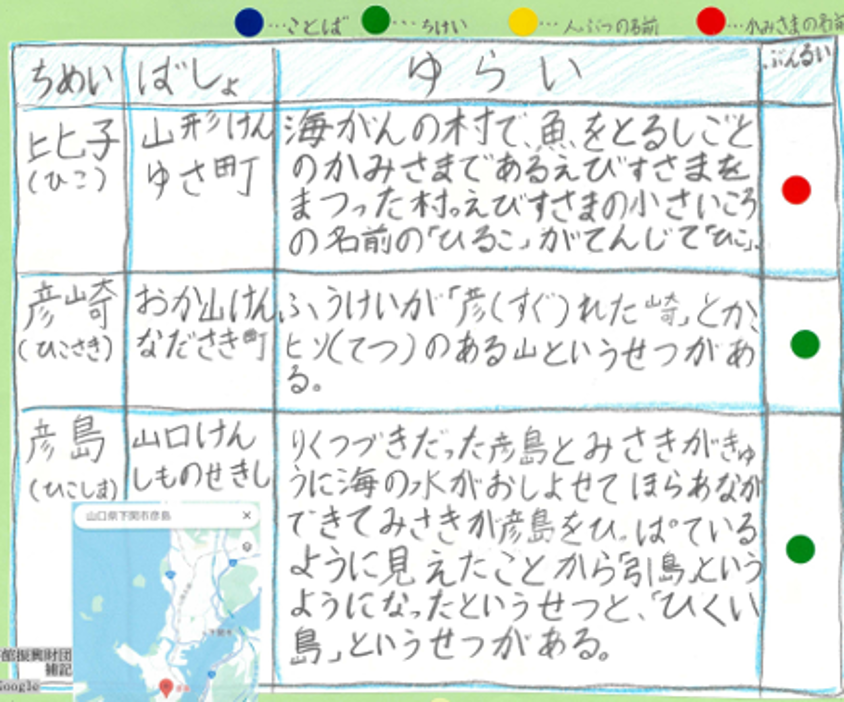 …ことば …ちけい …人ぶつの名前 …かみさまの名前
ちめい ばしょ ゆらい ぶんるい
比子
(ひこ)
山形けん
ゆさ町
海がんの村で、魚をとるしごと
のかみさまであるえびすさまを
まつった村。えびすさまの小さいころ
の名前の「ひるこ」がてんじて「ひこ」。
彦崎
(ひこさき)
おか山けん
なださき町
ふうけいが「彦(すぐ)れた崎」とか、
ヒソ(てつ)のある山というせつがあ
る。
彦島
(ひこしま)
山口けん
しものせきし
りくつづきだった彦島とみさきがきゅ
うに海の水がおしよせてほらあなが
できてみさきが彦島をひっぱっている
ように見えたことから「引島」という
ようになったというせつと、「ひくい
島」というせつがある。
山口県下関市彦島
館振興財団
補記
Google